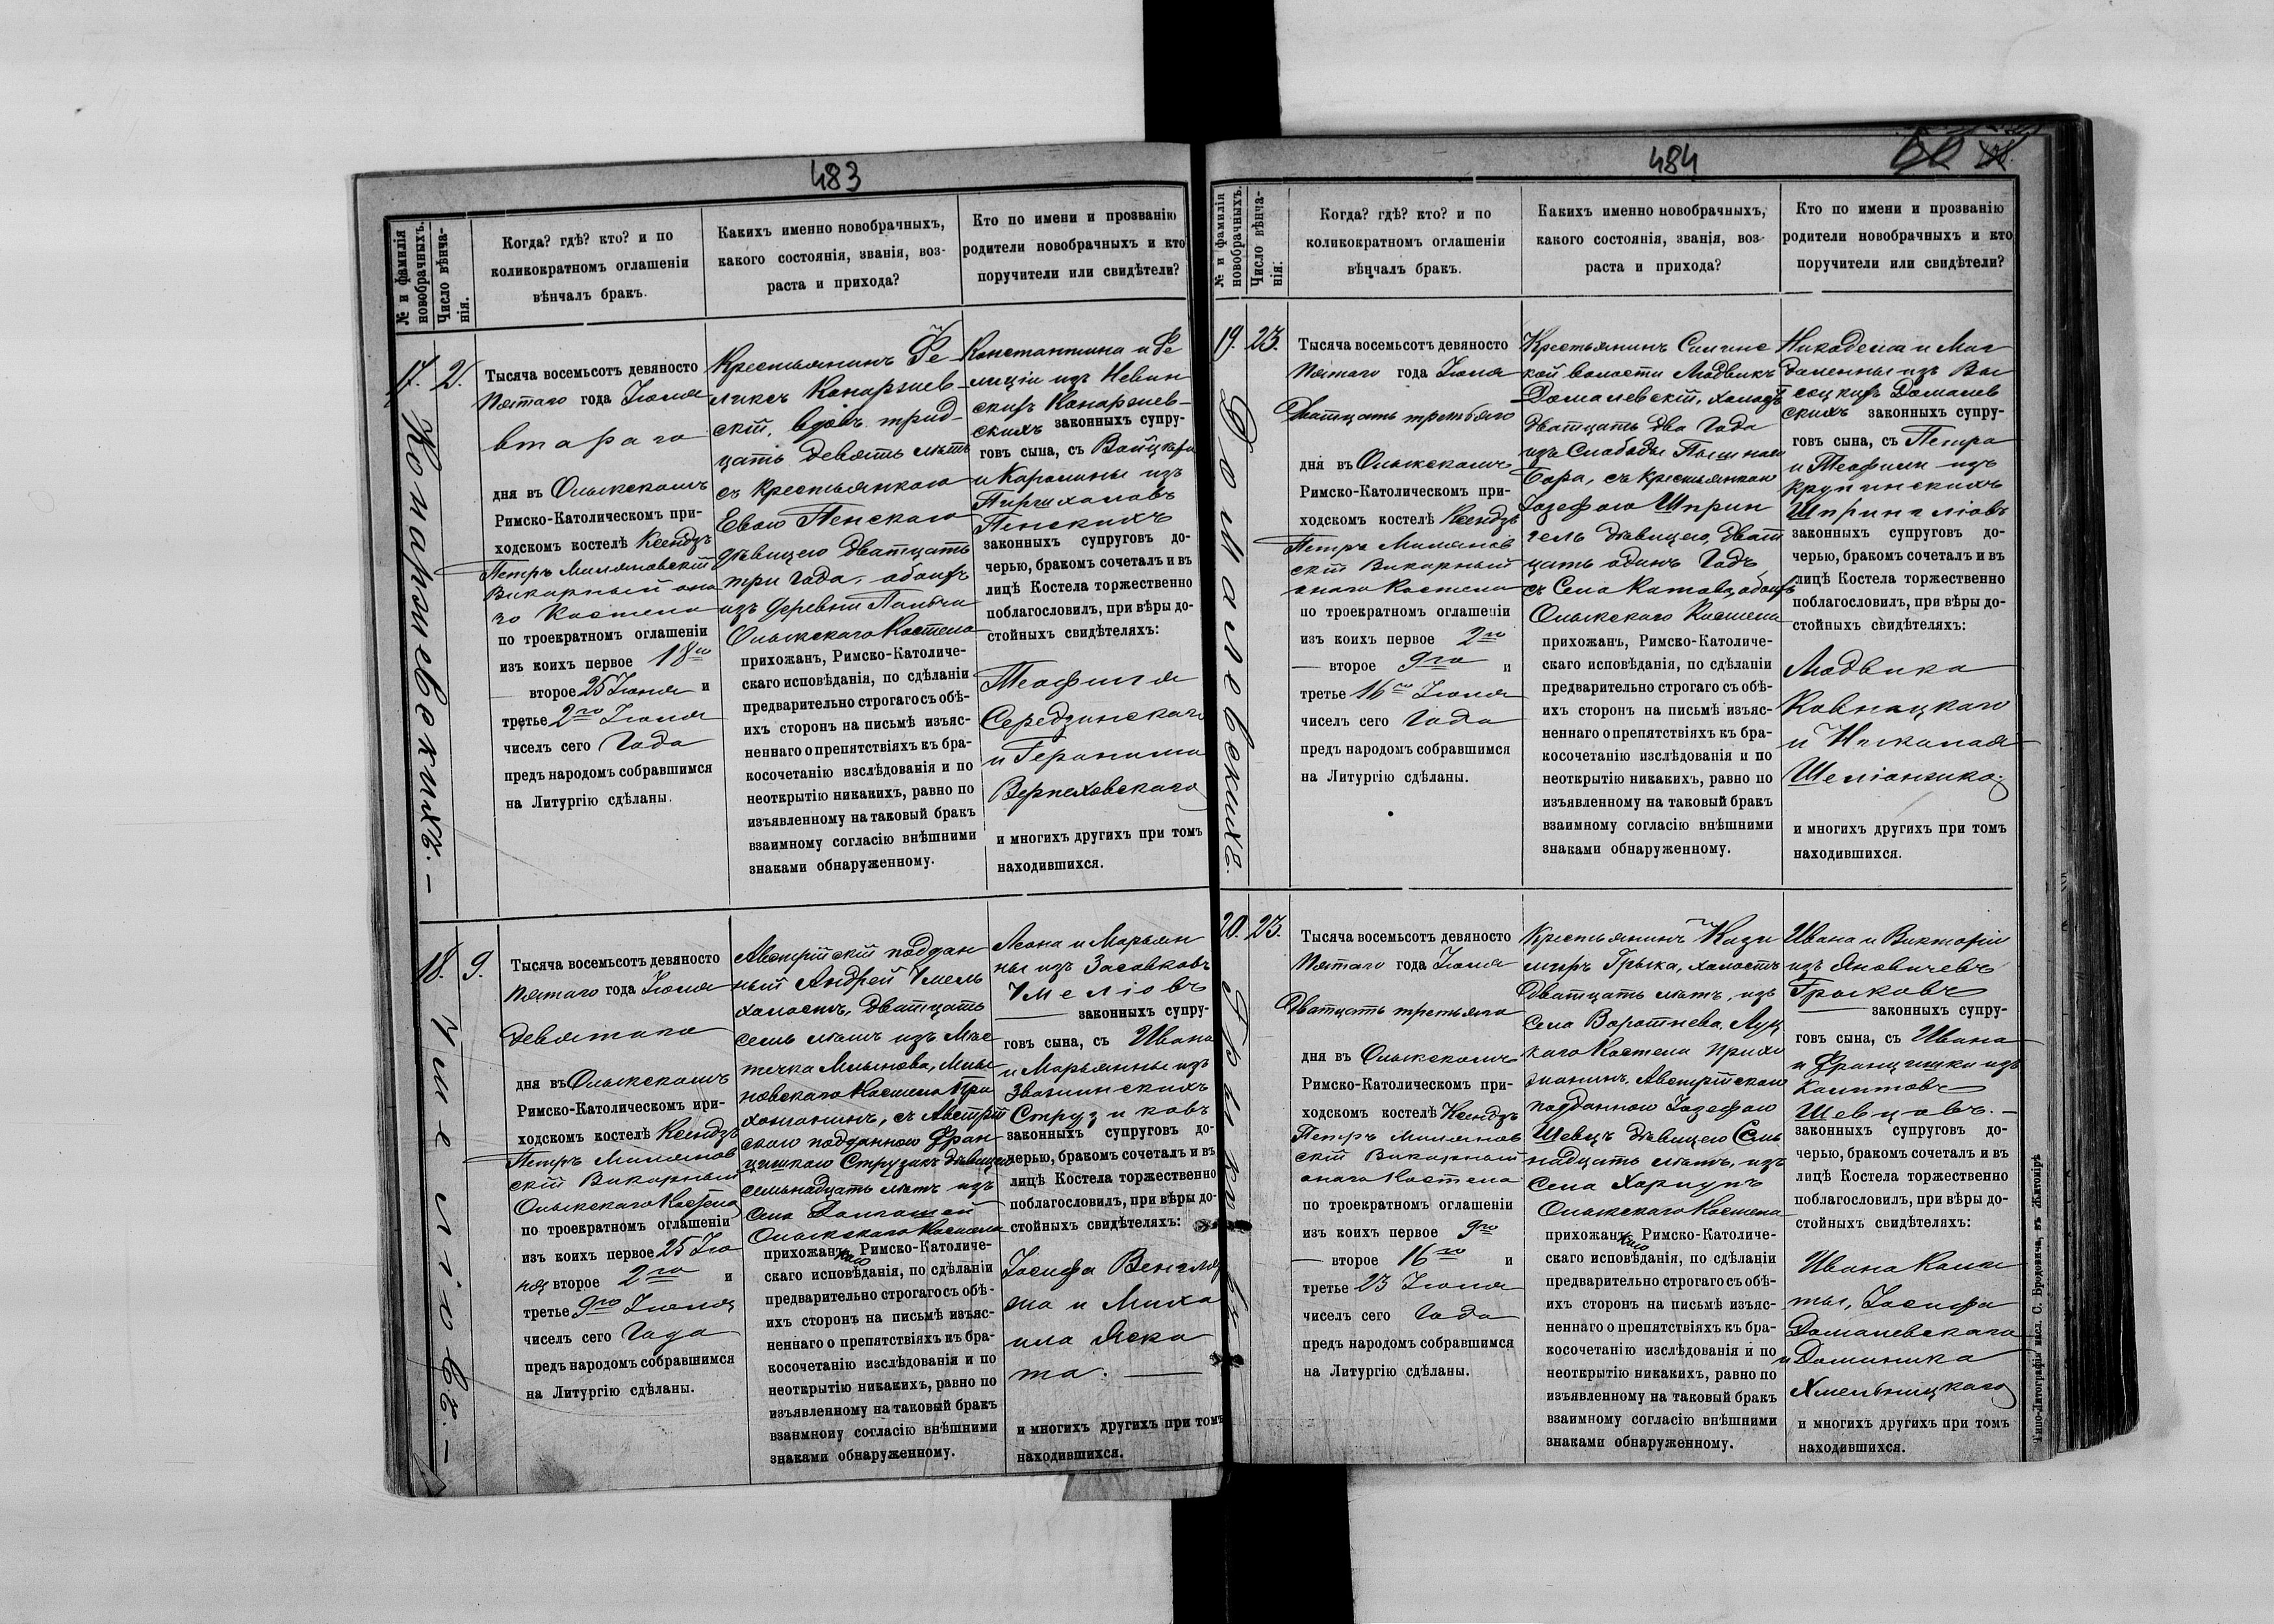 483
№ и фамилія
новобрачныхъ.
Число вѣнча-
нія.
Когда? гдѣ? кто? и по
коликократномъ оглашеніи
вѣнчалъ бракъ.
Какихъ именно новобрачныхъ,
какого состоянія, званія, воз-
раста и прихода?
Кто по имени и прозванію
родители новобрачныхъ и кто
поручители или свидѣтели?
17.
Конаржевскихъ. —
2.
Тысяча восемьсотъ девяносто
Пятаго года Іюля
втараго
дня въ Олыкскомъ
Римско-Католическомъ при-
ходскомъ костелѣ Ксендзъ
Петръ Миляновскій
Викарный она
го Костела
по троекратномъ оглашеніи
изъ коихъ первое 18го
— второе 25 Іюня и
третье 2го Іюля
чиселъ сего Года
предъ народомъ собравшимся
на Литургію сдѣланы.
Крестьянинъ Фе
ликсъ Конаржев-
скій, вдовъ трид-
цать девять лѣтъ
съ крестьянкою
Евою Пенскаю
дѣвицею дватцать
три года, обоихъ
изъ деревни
Олыкскаго Костела
прихожанъ, Римско-Католиче-
скаго исповѣданія, по сдѣланіи
предварительно строгаго съ обѣ-
ихъ сторонъ на письмѣ изъяс-
неннаго о препятствіяхъ къ бра-
косочетанію изслѣдованія и по
неоткрытію никакихъ, равно по
изъявленному на таковый бракъ
взаимному согласію внѣшними
знаками обнаруженному.
Константина и Фе
лиціи изъ Невин
скихъ Конаржев-
скихъ законныхъ супру-
говъ сына, съ
и Каролины изъ
Пенскихъ
законныхъ супруговъ до-
черью, бракомъ сочеталъ и въ
лицѣ Костела торжественно
поблагословилъ, при вѣры до-
стойныхъ свидѣтеляхъ:
Теофиля
Середзинскаго
и Геронима
Верпеховскаго
и многихъ другихъ при томъ
находившихся.
18.
Хмеліовъ. —
9.
Тысяча восемьсотъ девяносто
Пятаго года Іюля
Девятаго
дня въ Олыкскомъ
Римско-Католическомъ при-
ходскомъ костелѣ Ксендзъ
Петръ Милянов
скій Викарный
Олыкскаго Костела
по троекратномъ оглашеніи
изъ коихъ первое 25 Ію
ня второе 2го и
третье 9го Іюля
чиселъ сего Года
предъ народомъ собравшимся
на Литургію сдѣланы.
Австрійскій поддан
ный Андрей
холостъ, дватцать
семь лѣтъ изъ Мѣс
течка Млынова, Млы
новскаго Костела При
хожанинъ, съ Австрій
скою подданною Фран
цишкою Струзикъ дѣвицею
семьнадцать лѣтъ изъ
села
Олыкскаго Костела
прихожан Римско-Католиче-
скаго исповѣданія, по сдѣланіи
предварительно строгаго съ обѣ-
ихъ сторонъ на письмѣ изъяс-
неннаго о препятствіяхъ къ бра-
косочетанію изслѣдованія и по
неоткрытію никакихъ, равно по
изъявленному на таковый бракъ
взаимному согласію внѣшними
знаками обнаруженному.
Леона и Марьян
ны изъ Засавковъ
законныхъ супру-
говъ сына, съ Ивана
и Марьянны изъ
Струзиковъ
законныхъ супруговъ до-
черью, бракомъ сочеталъ и въ
лицѣ Костела торжественно
поблагословилъ, при вѣры до-
стойныхъ свидѣтеляхъ:
Іосифа
и Миха
ила Яско
та. —
и многихъ другихъ при томъ
находившихся.
484
№ и фамилія
новобрачныхъ.
Число вѣнча-
нія.
Когда? гдѣ? кто? и по
коликократномъ оглашеніи
вѣнчалъ бракъ.
Какихъ именно новобрачныхъ,
какого состоянія, званія, воз-
раста и прихода?
Кто по имени и прозванію
родители новобрачныхъ и кто
поручители или свидѣтели?
19.
Домалевскихъ.
23.
Тысяча восемьсотъ девяносто
Пятаго года Іюля
Дватцать третьяго
дня въ Олыкскомъ
Римско-Католическомъ при-
ходскомъ костелѣ Ксендзъ
Петръ Милянов
скій Викарный
онаго Костела
по троекратномъ оглашеніи
изъ коихъ первое 2го
— второе 9го и
третье 16го Іюля
чиселъ сего Года
предъ народомъ собравшимся
на Литургію сдѣланы.
Крестьянинъ
кой волости Людвикъ
Домалевскій, холостъ
дватцать два Года
изъ Слободы
Бора, съ крестьянкою
Іозефою Шприн
гель дѣвицею, дват
цать одинъ Годъ
съ Села Котова, обоихъ
Олыкскаго Костела
прихожанъ, Римско-Католиче-
скаго исповѣданія, по сдѣланіи
предварительно строгаго съ обѣ-
ихъ сторонъ на письмѣ изъяс-
неннаго о препятствіяхъ къ бра-
косочетанію изслѣдованія и по
неоткрытію никакихъ, равно по
изъявленному на таковый бракъ
взаимному согласію внѣшними
знаками обнаруженному.
Никодема и Маг
далены изъ Вы
соцкихъ Домалев
скихъ законныхъ супру-
говъ сына, съ Петра
и Теофили изъ
Крупинскихъ
Шпрингліовъ
законныхъ супруговъ до-
черью, бракомъ сочеталъ и въ
лицѣ Костела торжественно
поблагословилъ, при вѣры до-
стойныхъ свидѣтеляхъ:
Людвика
Ковнацкаго
и Николая
и многихъ другихъ при томъ
находившихся.
20.
23.
Тысяча восемьсотъ девяносто
Пятаго года Іюля
Дватцать третьяго
дня въ Олыкскомъ
Римско-Католическомъ при-
ходскомъ костелѣ Ксендзъ
Петръ Милянов
скій Викарный
онаго Костела
по троекратномъ оглашеніи
изъ коихъ первое 9го
— второе 16го и
третье 23 Іюля
чиселъ сего Года
предъ народомъ собравшимся
на Литургію сдѣланы.
Крестьянинъ Кази
миръ Грыка, холостъ
Дватцать лѣтъ, изъ
Села Воротнева, Луц
каго Костела прихо
жанинъ, Австрійскою
подданною Іозефою
Шевцъ дѣвицею Семь
надцать лѣтъ, изъ
Села Харлупъ
Олыкскаго Костела
прихожан Римско-Католиче-
скаго исповѣданія, по сдѣланіи
предварительно строгаго съ обѣ-
ихъ сторонъ на письмѣ изъяс-
неннаго о препятствіяхъ къ бра-
косочетанію изслѣдованія и по
неоткрытію никакихъ, равно по
изъявленному на таковый бракъ
взаимному согласію внѣшними
знаками обнаруженному.
Ивана и Викторіи
изъ Яновичевъ
Грыковъ
законныхъ супру-
говъ сына, съ Ивана
и Францишки изъ
Калитовъ
Шевцовъ. —
законныхъ супруговъ до-
черью, бракомъ сочеталъ и въ
лицѣ Костела торжественно
поблагословилъ, при вѣры до-
стойныхъ свидѣтеляхъ:
Ивана Кали
ты, Іосифа
Домалевскаго
и Доминика
Хмельницкаго
и многихъ другихъ при томъ
находившихся.
Типо-Литографія насл. С. Бродовича, въ Житомірѣ